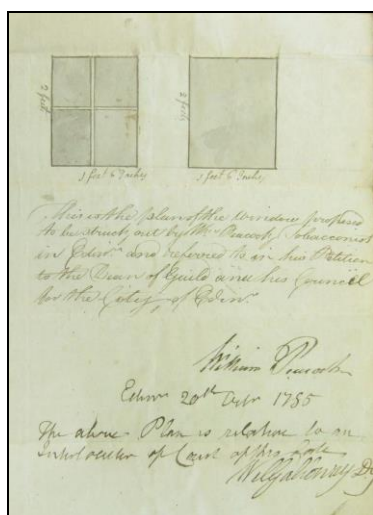 2 feet
2 feet
1 foot 6 Inches
1 foot 6 Inches
This is the plan of the window proposed
to be struck out by Mr. Peacock Tobacconist
in Edinr. and referred to in his Petition
to the Dean of Guild and his Council
for the City of Edinr.
William Peacock
Edinr 20th 1785
The above Plan is relation to an
Interlocutor of Court of this date